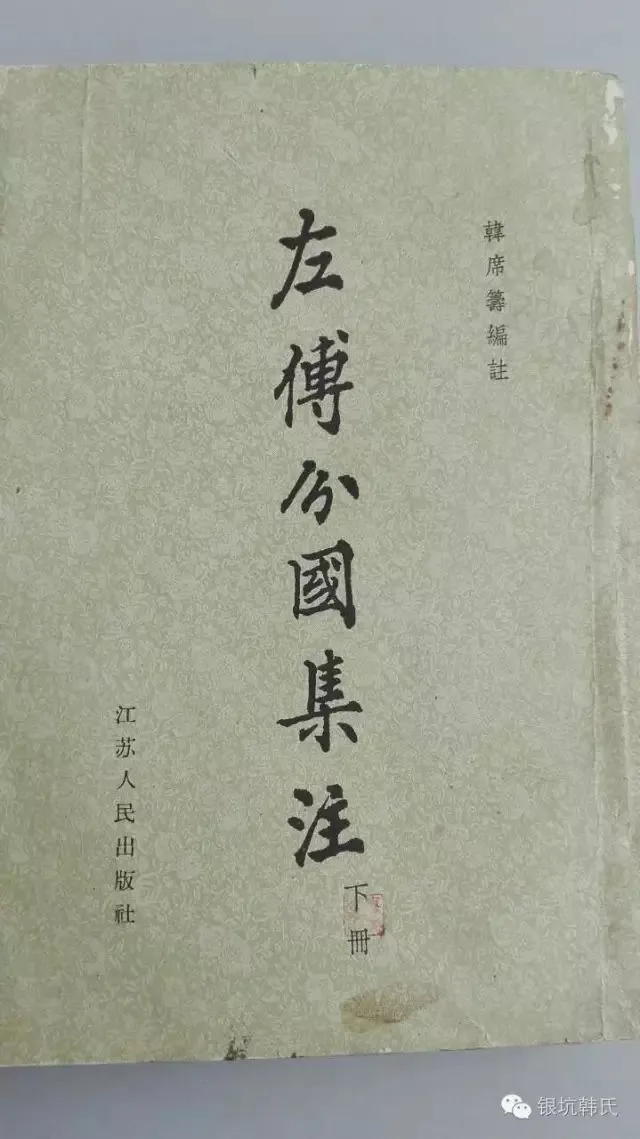 韓席籌編註
左傳分國集注
下冊
江苏人民出版社
银坑韩氏